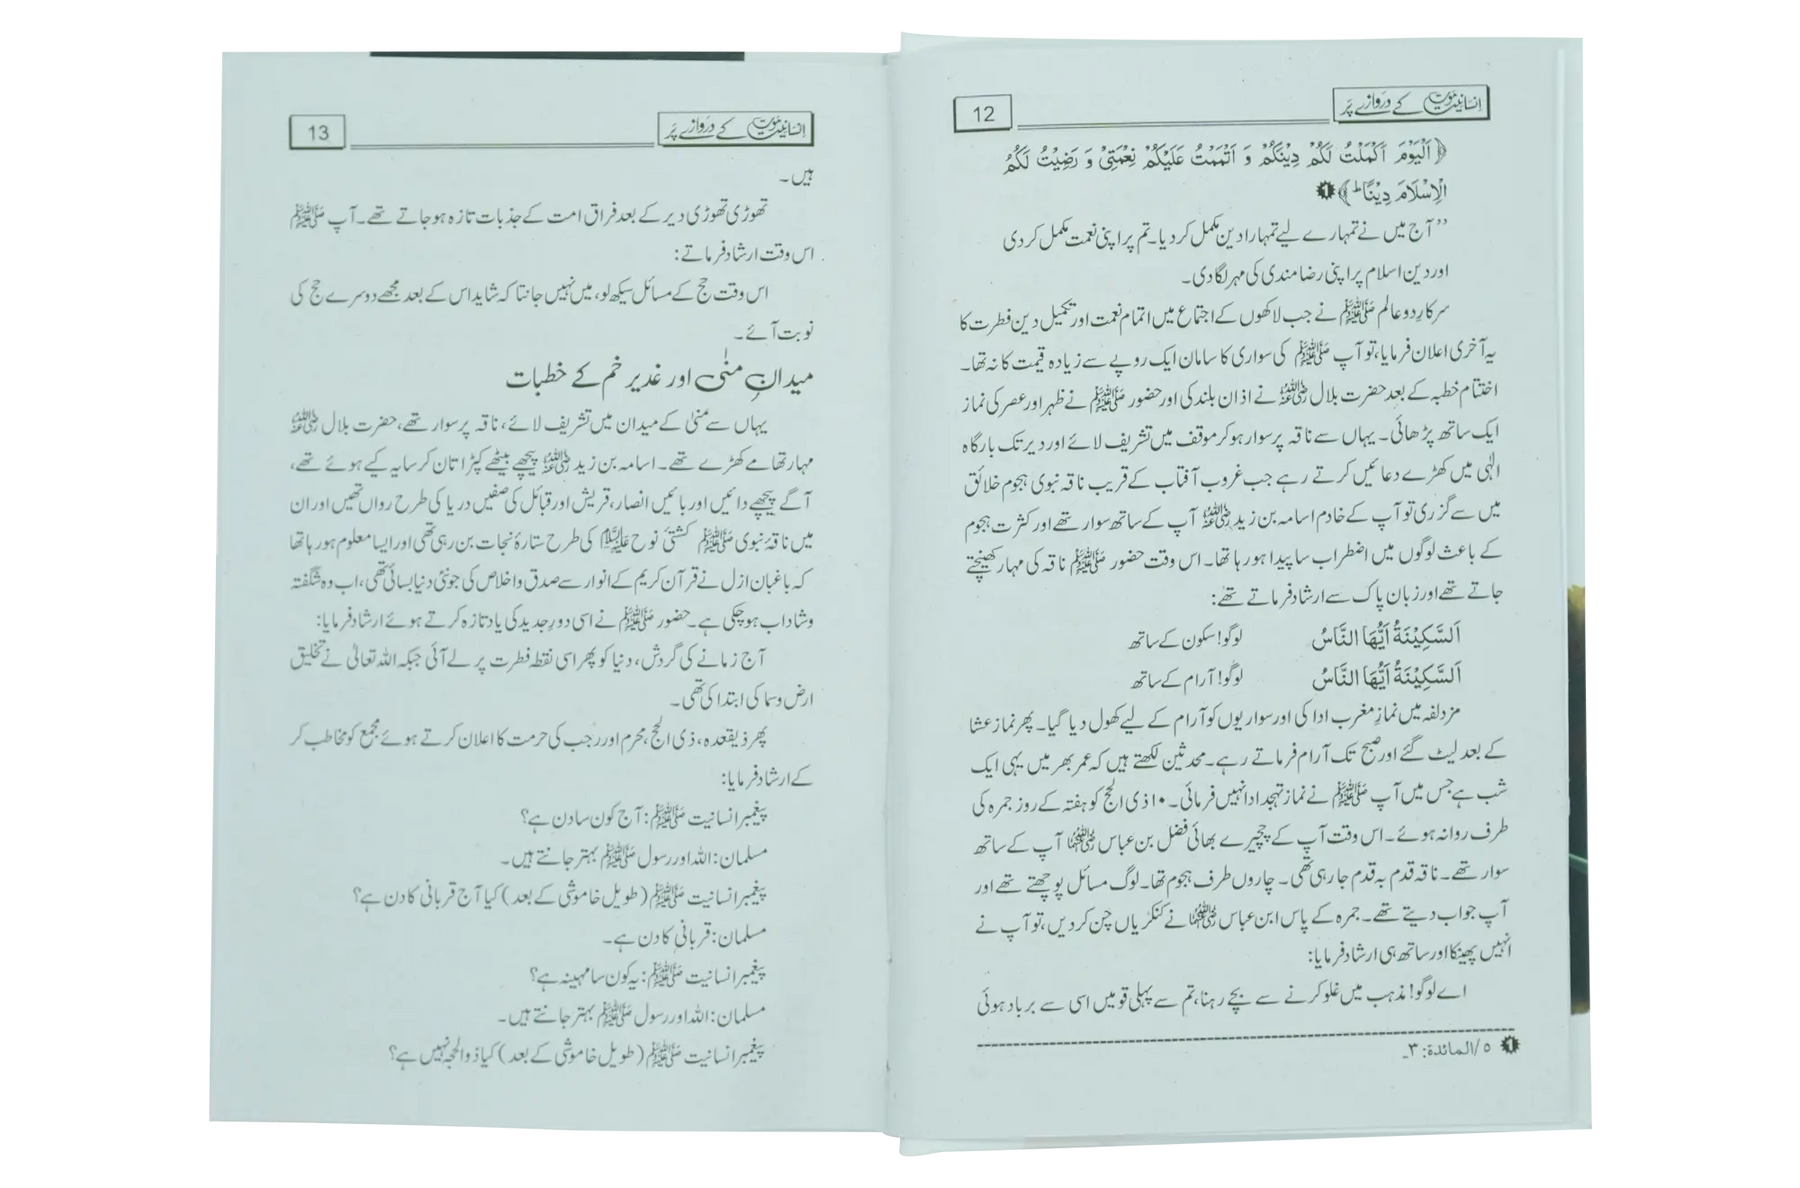 انسانیت موت کے دروازے پر
12
﴿اَلْیَوْمَ اَکْمَلْتُ لَکُمْ دِیْنَکُمْ وَ اَتْمَمْتُ عَلَیْکُمْ نِعْمَتِیْ وَ رَضِیْتُ لَکُمُ
الْاِسْلَامَ دِیْنًا ؕ﴾ ❶
’’آج میں نے تمہارے لیے تمہارا دین مکمل کر دیا۔ تم پر اپنی نعمت مکمل کر دی
اور دین اسلام پر اپنی رضا مندی کی مہر لگا دی۔
سرکار دو عالم ﷺ نے جب لاکھوں کے اجتماع میں اتمام نعمت اور تکمیل دین فطرت کا
یہ آخری اعلان فرمایا، تو آپ ﷺ کی سواری کا سامان ایک روپے سے زیادہ قیمت کا نہ تھا۔
اختتام خطبہ کے بعد حضرت بلال رضی اللہ عنہ نے اذان بلند کی اور حضور ﷺ نے ظہر اور عصر کی نماز
ایک ساتھ پڑھائی۔ یہاں سے ناقہ پر سوار ہو کر موقف میں تشریف لائے اور دیر تک بارگاہ
الٰہی میں کھڑے دعائیں کرتے رہے جب غروب آفتاب کے قریب ناقہ نبوی ہجوم خلائق
میں سے گزری تو آپ کے خادم اسامہ بن زید رضی اللہ عنہ آپ کے ساتھ سوار تھے اور کثرت ہجوم
کے باعث لوگوں میں اضطراب سا پیدا ہو رہا تھا۔ اس وقت حضور ﷺ ناقہ کی مہار کھینچتے
جاتے تھے اور زبان پاک سے ارشاد فرماتے تھے:
اَلسَّکِیْنَۃُ اَیُّھَا النَّاسُ لوگو! سکون کے ساتھ
اَلسَّکِیْنَۃُ اَیُّھَا النَّاسُ لوگو! آرام کے ساتھ
مزدلفہ میں نمازِ مغرب ادا کی اور سواریوں کو آرام کے لیے کھول دیا گیا۔ پھر نماز عشا
کے بعد لیٹ گئے اور صبح تک آرام فرماتے رہے۔ محدثین لکھتے ہیں کہ عمر بھر میں یہی ایک
شب ہے جس میں آپ ﷺ نے نماز تہجد ادا نہیں فرمائی۔ ۱۰ ذی الحج کو ہفتہ کے روز جمرہ کی
طرف روانہ ہوئے۔ اس وقت آپ کے چچیرے بھائی فضل بن عباس رضی اللہ عنہما آپ کے ساتھ
سوار تھے۔ ناقہ قدم بہ قدم جا رہی تھی۔ چاروں طرف ہجوم تھا۔ لوگ مسائل پوچھتے تھے اور
آپ جواب دیتے تھے۔ جمرہ کے پاس ابن عباس رضی اللہ عنہما نے کنکریاں چن کر دیں، تو آپ نے
انہیں پھینکا اور ساتھ ہی ارشاد فرمایا:
اے لوگو! مذہب میں غلو کرنے سے بچے رہنا، تم سے پہلی قومیں اسی سے برباد ہوئی
❶ ۵/المائدۃ: ۳۔
انسانیت موت کے دروازے پر
13
ہیں۔
تھوڑی تھوڑی دیر کے بعد فراق امت کے جذبات تازہ ہو جاتے تھے۔ آپ ﷺ
اس وقت ارشاد فرماتے:
اس وقت حج کے مسائل سیکھ لو، میں نہیں جانتا کہ شاید اس کے بعد مجھے دوسرے حج کی
نوبت آئے۔
میدانِ منیٰ اور غدیر خم کے خطبات
یہاں سے منیٰ کے میدان میں تشریف لائے، ناقہ پر سوار تھے، حضرت بلال رضی اللہ عنہ
مہار تھامے کھڑے تھے۔ اسامہ بن زید رضی اللہ عنہ پیچھے بیٹھے کپڑا تان کر سایہ کیے ہوئے تھے،
آگے پیچھے دائیں اور بائیں انصار، قریش اور قبائل کی صفیں دریا کی طرح رواں تھیں اور ان
میں ناقۂ نبوی ﷺ کشتی نوح علیہ السلام کی طرح ستارۂ نجات بن رہی تھی اور ایسا معلوم ہو رہا تھا
کہ باغبان ازل نے قرآن کریم کے انوار سے صدق و اخلاص کی جو نئی دنیا بسائی تھی، اب وہ شگفتہ
و شاداب ہو چکی ہے۔ حضور ﷺ نے اسی دورِ جدید کی یاد تازہ کرتے ہوئے ارشاد فرمایا:
آج زمانے کی گردش، دنیا کو پھر اسی نقطہ فطرت پر لے آئی جبکہ اللہ تعالیٰ نے تخلیق
ارض و سما کی ابتدا کی تھی۔
پھر ذیقعدہ، ذی الحج، محرم اور رجب کی حرمت کا اعلان کرتے ہوئے مجمع کو مخاطب کر
کے ارشاد فرمایا:
پیغمبر انسانیت ﷺ: آج کون سا دن ہے؟
مسلمان: اللہ اور رسول ﷺ بہتر جانتے ہیں۔
پیغمبر انسانیت ﷺ (طویل خاموشی کے بعد) کیا آج قربانی کا دن ہے؟
مسلمان: قربانی کا دن ہے۔
پیغمبر انسانیت ﷺ: یہ کون سا مہینہ ہے؟
مسلمان: اللہ اور رسول ﷺ بہتر جانتے ہیں۔
پیغمبر انسانیت ﷺ (طویل خاموشی کے بعد) کیا ذوالحجہ نہیں ہے؟